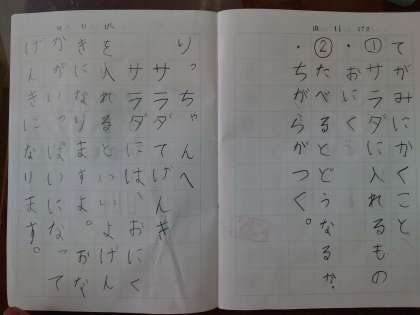 てがみにかくこと
①サラダに入れるもの
・おにく
②たべるとどうなるか。
・ちがらがつく。
りっちゃんへ
サラダてげんき
サラダには、おにく
を入れるといいよげん
きになりますよ。おな
かがいっぱいになって
げんきになります。